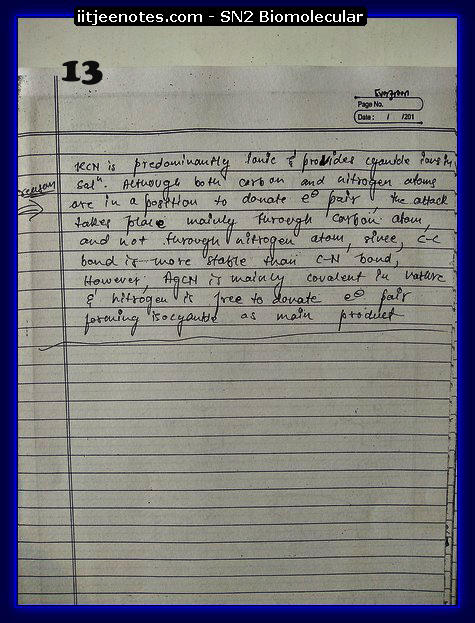 iitjeenotes.com - SN2 Biomolecular
13
Page No.
Date: / /201
reason
KCN is predominantly Ionic & provides cyanide ions in
Solⁿ. Although both carbon and nitrogen atoms
are in a position to donate e⊖ pair, the attack
takes place mainly through carbon atom,
and not through nitrogen atom, since, C-C
bond is more stable than C-N bond,
However, AgCN is mainly covalent in nature
& nitrogen is free to donate e⊖ pair
forming isocyanide as main product